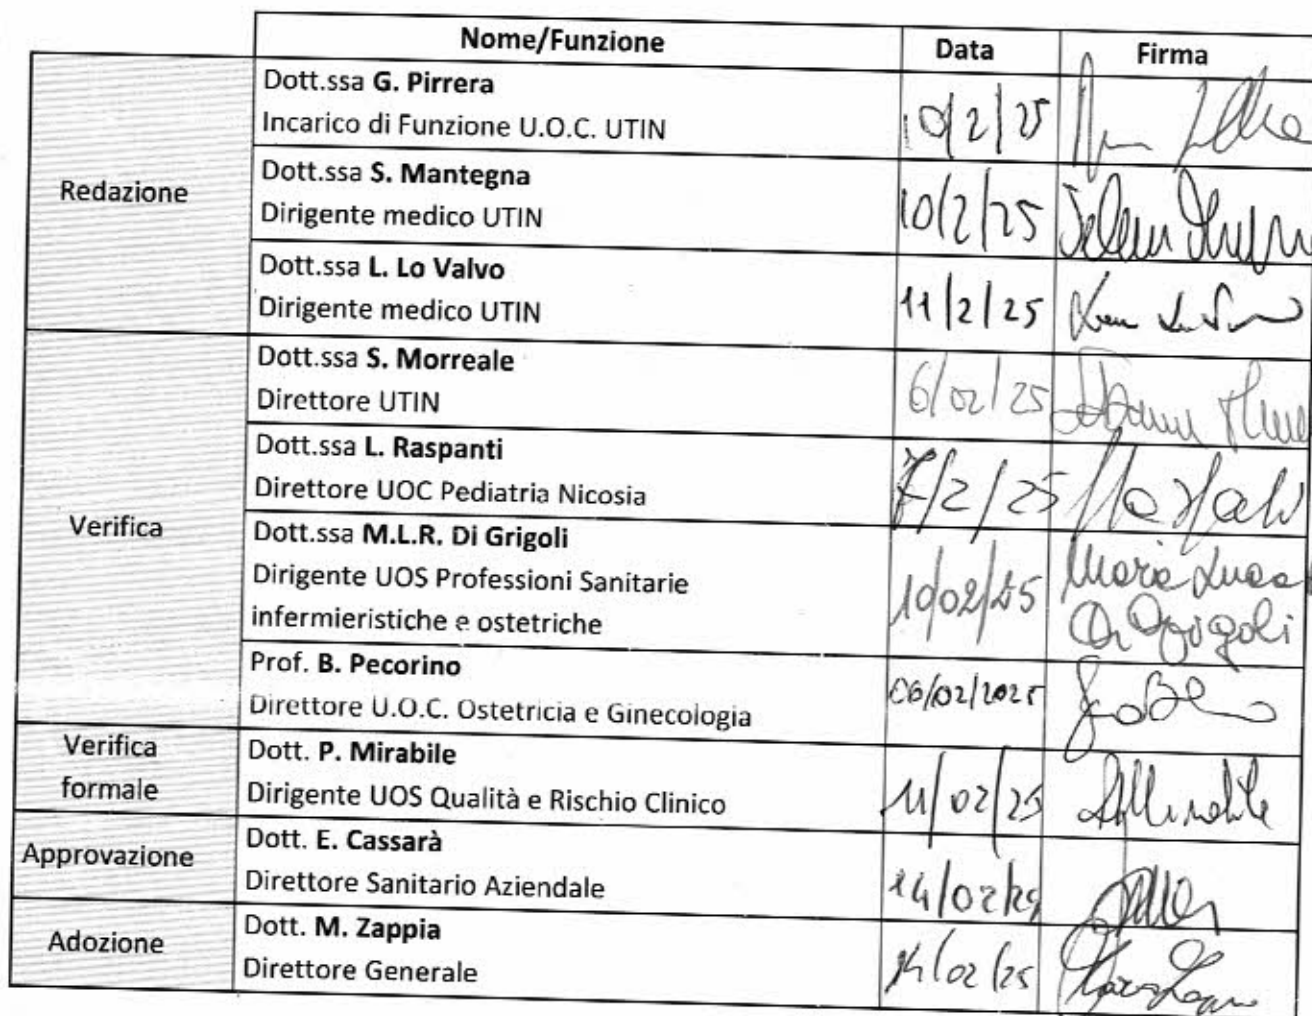 Nome/Funzione Data Firma
Redazione
Dott.ssa G. Pirrera
Incarico di Funzione U.O.C. UTIN
10/2/25
Dott.ssa S. Mantegna
Dirigente medico UTIN
10/2/25
Dott.ssa L. Lo Valvo
Dirigente medico UTIN
11/2/25
Verifica
Dott.ssa S. Morreale
Direttore UTIN
6/02/25
Dott.ssa L. Raspanti
Direttore UOC Pediatria Nicosia
7/2/25
Dott.ssa M.L.R. Di Grigoli
Dirigente UOS Professioni Sanitarie
infermieristiche e ostetriche
10/02/25
Maria Luisa
Di Grigoli
Prof. B. Pecorino
Direttore U.O.C. Ostetricia e Ginecologia
06/02/2025
Verifica
formale
Dott. P. Mirabile
Dirigente UOS Qualità e Rischio Clinico
11/02/25
Approvazione
Dott. E. Cassarà
Direttore Sanitario Aziendale
14/02/25
Adozione
Dott. M. Zappia
Direttore Generale
14/02/25